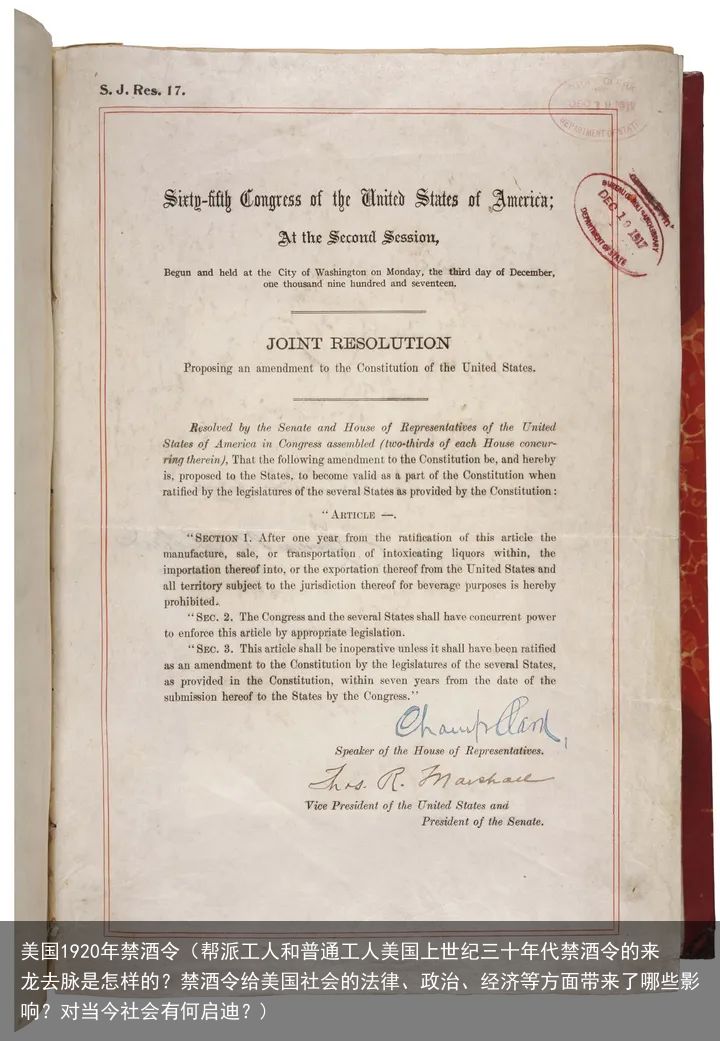 S. J. Res. 17.
DEC 19 1917
DEPARTMENT OF STATE
DEC 19 1917
DEPARTMENT OF STATE
Sixty-fifth Congress of the United States of America;
At the Second Session,
Begun and held at the City of Washington on Monday, the third day of December,
one thousand nine hundred and seventeen.
JOINT RESOLUTION
Proposing an amendment to the Constitution of the United States.
Resolved by the Senate and House of Representatives of the United
States of America in Congress assembled (two-thirds of each House concur-
ring therein), That the following amendment to the Constitution be, and hereby
is, proposed to the States, to become valid as a part of the Constitution when
ratified by the legislatures of the several States as provided by the Constitution:
"ARTICLE —.
"SECTION 1. After one year from the ratification of this article the
manufacture, sale, or transportation of intoxicating liquors within, the
importation thereof into, or the exportation thereof from the United States and
all territory subject to the jurisdiction thereof for beverage purposes is hereby
prohibited.
"SEC. 2. The Congress and the several States shall have concurrent power
to enforce this article by appropriate legislation.
"SEC. 3. This article shall be inoperative unless it shall have been ratified
as an amendment to the Constitution by the legislatures of the several States,
as provided in the Constitution, within seven years from the date of the
submission hereof to the States by the Congress."
Champ Clark
Speaker of the House of Representatives.
Thos. R. Marshall
Vice President of the United States and
President of the Senate.
美国1920年禁酒令（帮派工人和普通工人美国上世纪三十年代禁酒令的来
龙去脉是怎样的？禁酒令给美国社会的法律、政治、经济等方面带来了哪些影
响？对当今社会有何启迪？）